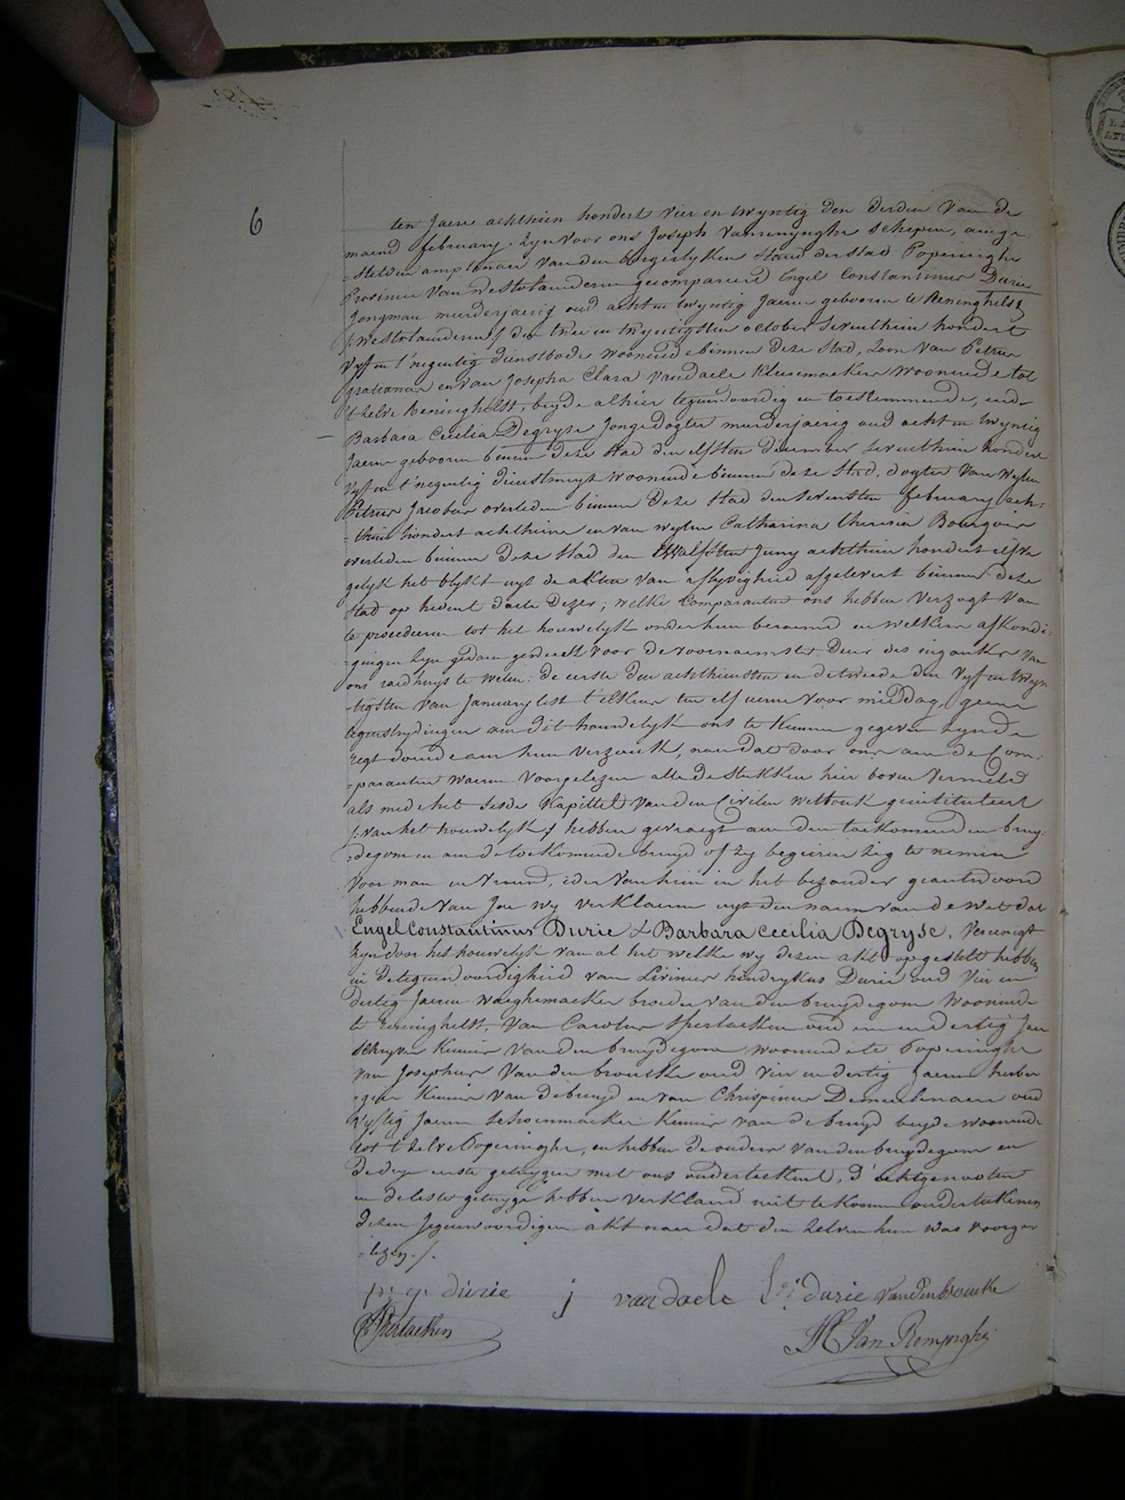 6
ten Jaere achthien hondert vier en twyntig den derden van de
maend february. Zyn voor ons Joseph Vanrenynghe schepen, ange-
stelden amptenaer van den borgerlyken staet der stad Poperinghe
Provincie van Westvlaenderen gecompareerd Engel Constantinus Durie
Jongman meerderjaerig oud acht en twyntig Jaeren gebooren te Reninghelst
/: Westvlaenderen :/ den twee en twyntigsten october seventhien hondert
vyf en t'negentig dienstbode woonende binnen deze stad, zoon van Petrus
gratianus en van Josepha Clara Vandaele Kleermaekers woonende tot
't zelve Reninghelst, beyde alhier tegenwoordig en toestemmende, ende
Barbara Cecilia Degryse Jongedogter meerderjaerig oud acht en twyntig
Jaeren gebooren binnen deze stad den elfsten december seventhien hondert
vyf en t'negentig dienstmeyt woonende binnen deze stad, dogter van wylen
Petrus Jacobus overleden binnen deze stad den sevensten february ach-
-thien hondert achthiene en van wylen Catharina theresia Bourgois
overleden binnen deze stad den twalfsten Juny achthien hondert elfve
gelyk het blykt uyt de akten van aflyvigheid afgelevert binnen deze
stad op heden daete dezes; welke Comparanten ons hebben verzogt van
te procederen tot het houwelyk onder hun beraemd en welkers afkondi-
gingen zyn gedaen geweest voor de voornaemste deur des ingankx van
ons raedhuys te weten: de eerste den achthiensten en de tweede den vyf en twyn-
-tigsten van January lest t'elkens ten elf ueren voor middag, geene
tegenstrydingen aen dit houwelyk ons te kennen gegeven zynde
regt doende aen hun verzouk, naer dat door ons aen de Com-
-paranten waeren voorgelezen alle de stukken hier boven vermeld
als mede het sesde kapittel van den Civilen wetbouk geintituleert
/: van het houwelyk :/ hebben gevraegt aen den toekomenden bruy-
-degom en aen de toekomende bruyd of zy begeeren zig te nemen
voor man en vrouw, ider van hun in het bezonder geantwoord
hebbende van Jae wy verklaeren uyt den naem van de wet dat
Engel Constantinus Durie & Barbara Cecilia Degryse, vereenigt
zyn door het houwelyk van al het welke wy dezen akt opgestelt hebben
in de tegenwoordigheid van Livinus hendrykus Durie oud vier en
dertig Jaeren waeghemaeker broeder van den bruydegom woonende
te Reninghelst, van Carolus Sperlaeken oud een en dertig Jaer
schryver kennis van den bruydegom woonende te Poperinghe
van Josephus Van den broucke oud vier en dertig Jaeren herber
-gier kennis van de bruyd en van Chrispinus Demeulenaer oud
vyftig Jaeren schoenmaeker kennis van de bruyd beyde woonende
tot 't zelve Poperinghe, en hebben de ouders van den bruydegom en
de dry eerste getuygen met ons onderteekent, d'echtgenooten
en de leste getuyge hebben verklaerd niet te konnen onderteekenen
dezen Jegenwoordigen akt naer dat den zelven hun was voorge-
-lezen./.
p: g: durie j vandaele L: durie Vandenbroucke
Sperlaeken